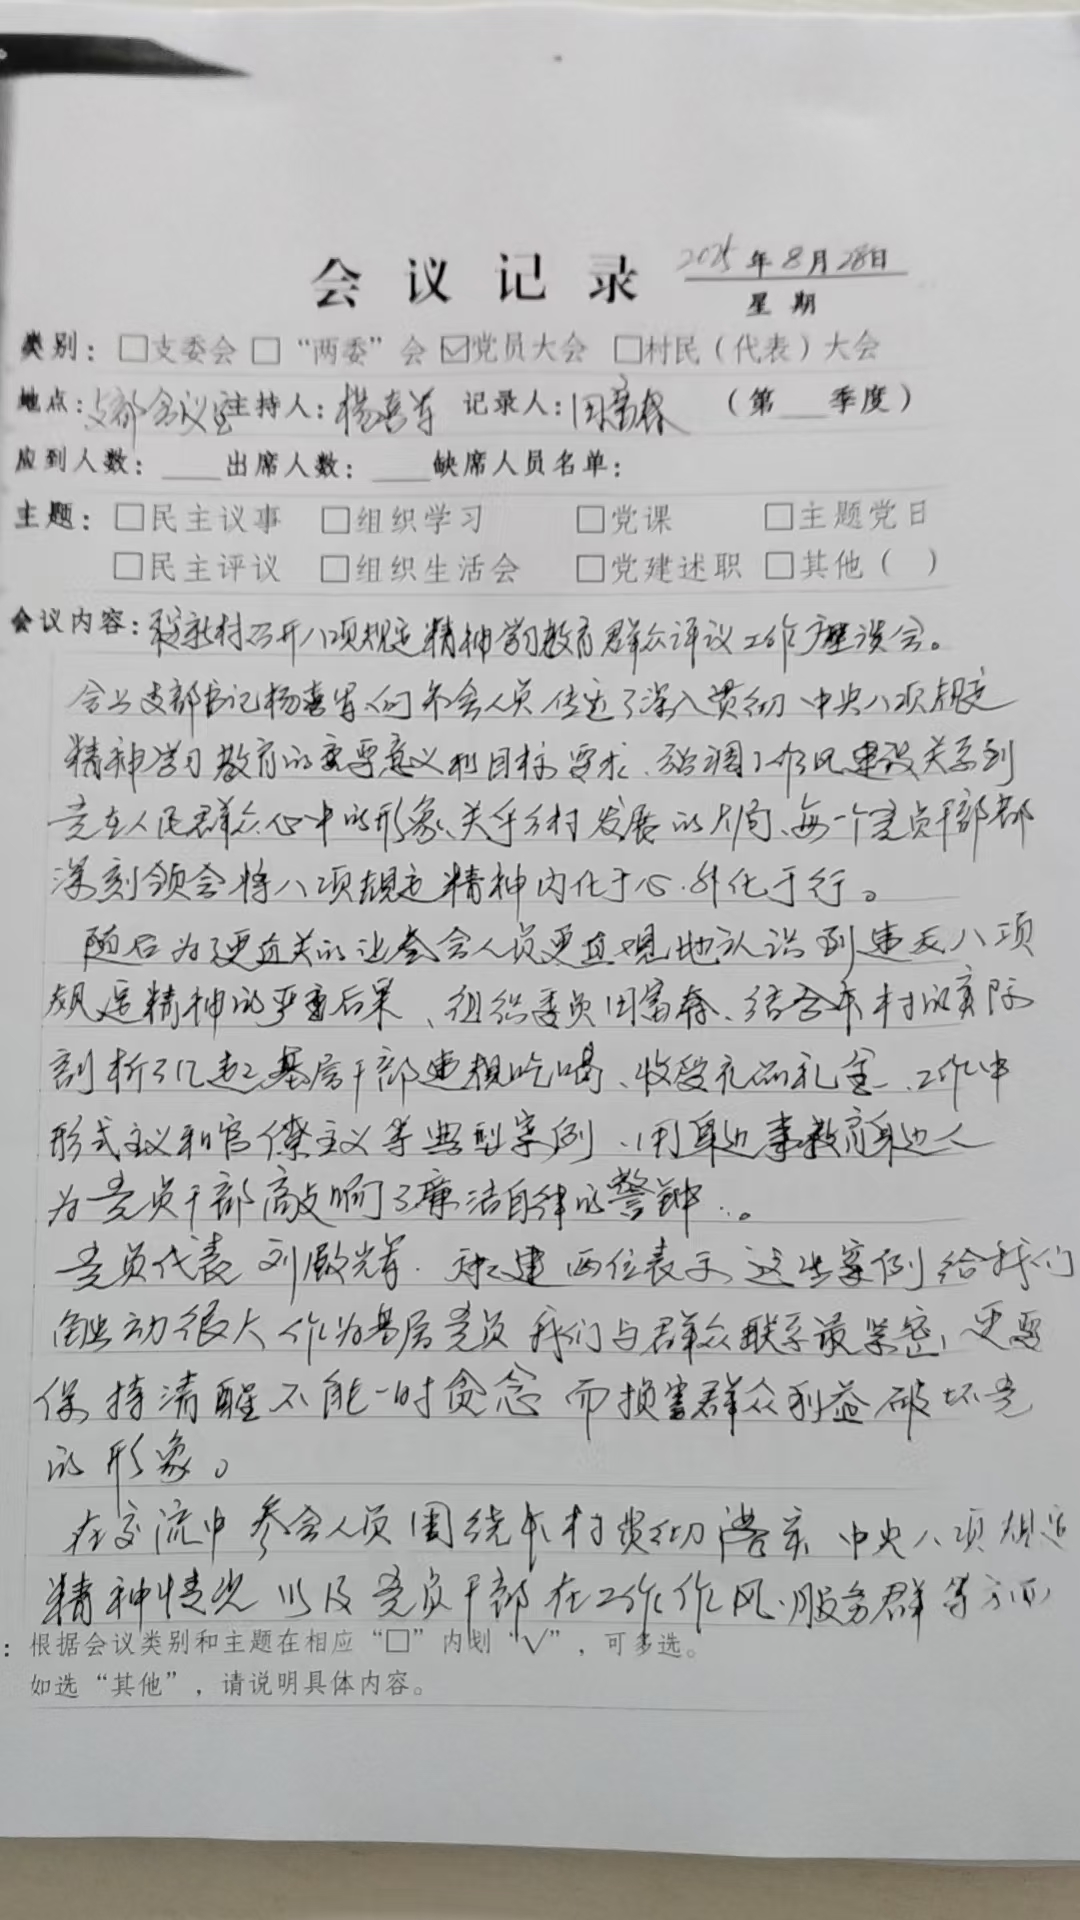 会议记录 2025年8月28日
星期
类别：□支委会 □“两委”会 ☑党员大会 □村民（代表）大会
地点：支部会议室 主持人：杨喜军 记录人：（第___季度）
应到人数：____出席人数：____缺席人员名单：
主题：□民主议事 □组织学习 □党课 □主题党日
□民主评议 □组织生活会 □党建述职 □其他（ ）
会议内容：新村召开八项规定精神学习教育群众评议工作座谈会。
会上支部书记杨喜军向参会人员传达了深入贯彻中央八项规定
精神学习教育的重要意义和目标要求、强调了作风建设关系到
党在人民群众心中的形象、关乎乡村发展的大局、每一个党员干部都
深刻领会将八项规定精神内化于心.外化于行。
随后为了更直关的让参会人员更直观地认识到违反八项
规定精神的严重后果、组织委员、结合本村的实际
剖析了几起基层干部违规吃喝、收受礼品礼金、工作中
形式主义和官僚主义等典型案例、用身边事教育身边人
为党员干部敲响了廉洁自律的警钟…。
党员代表刘殿军.建两位表示这些案例给我们
触动很大作为基层党员我们与群众联系最紧密，更要
保持清醒不能一时贪念而损害群众利益破坏党
的形象。
在交流中参会人员围绕本村贯彻落实中央八项规定
精神情况以及党员干部在工作作风.服务群等方面
：根据会议类别和主题在相应“□”内划“√”，可多选。
如选“其他”，请说明具体内容。